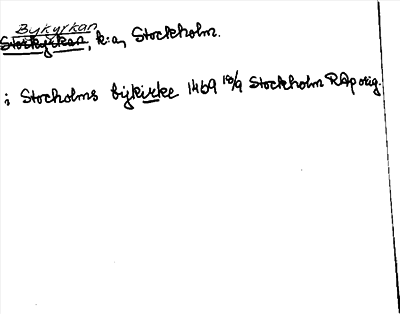 Bykyrkan
Storkyrkan, k:a, Stockholm.
i Stocholms bykirke 1469 18/9 Stockholm RAp orig.